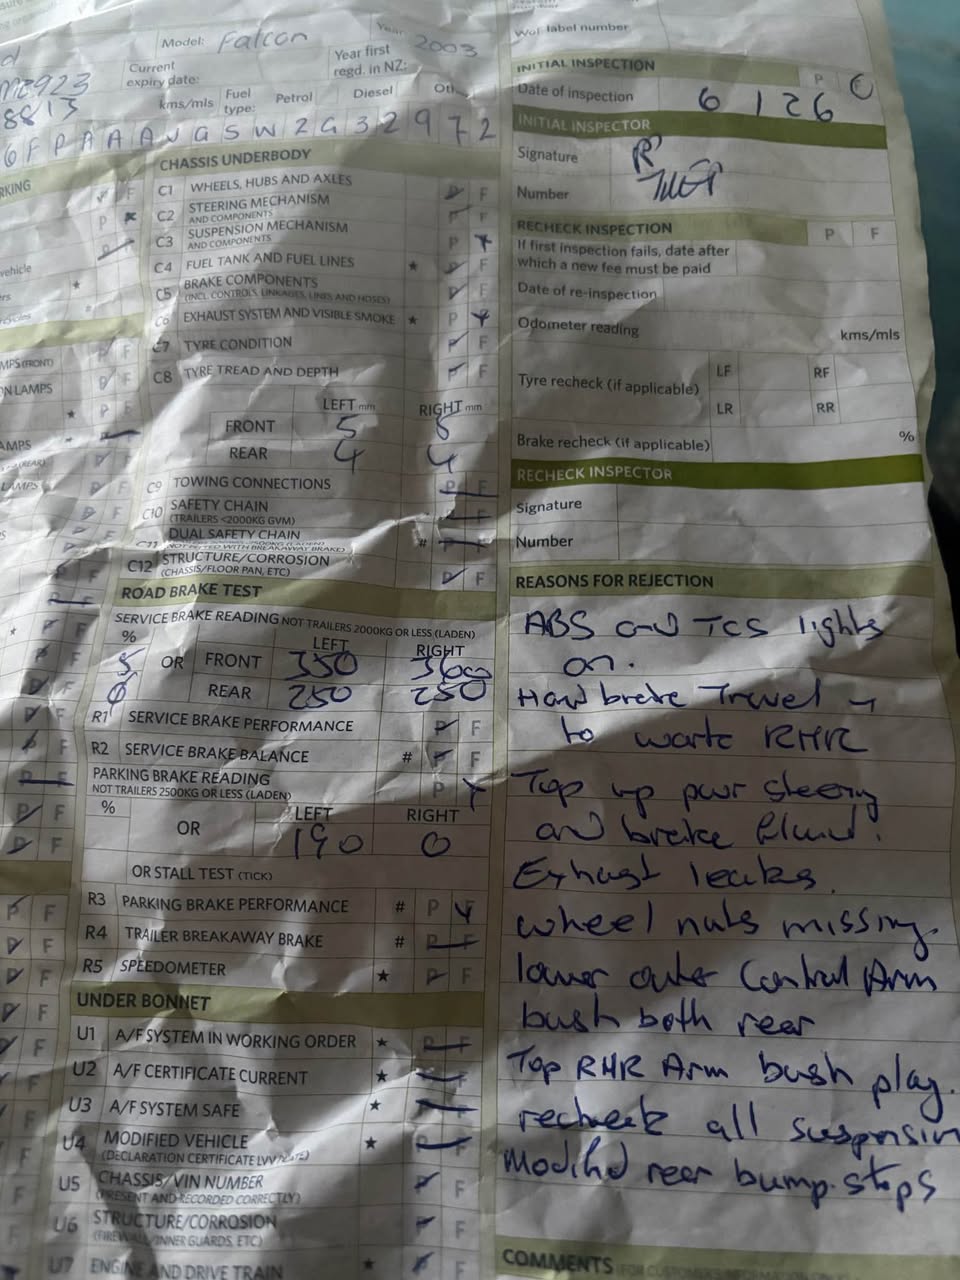 Model: Falcon
Year 2003
Current expiry date:
Year first regd. in NZ:
kms/mls
Fuel type:
Petrol
Diesel
6 F P A A A J G S W 2 G 3 2 9 7 2
CHASSIS UNDERBODY
C1 WHEELS, HUBS AND AXLES P F
C2 STEERING MECHANISM AND COMPONENTS P F
C3 SUSPENSION MECHANISM AND COMPONENTS P F
C4 FUEL TANK AND FUEL LINES ★ P F
C5 BRAKE COMPONENTS (INCL. CONTROLS, LINKAGES, LINES AND HOSES) P F
C6 EXHAUST SYSTEM AND VISIBLE SMOKE ★ P F
C7 TYRE CONDITION P F
C8 TYRE TREAD AND DEPTH P F
LEFT mm RIGHT mm
FRONT 5
REAR 4 4
C9 TOWING CONNECTIONS P F
C10 SAFETY CHAIN (TRAILERS <2000KG GVM) P F
C11 DUAL SAFETY CHAIN # P F
C12 STRUCTURE/CORROSION (CHASSIS/FLOOR PAN, ETC) P F
ROAD BRAKE TEST
SERVICE BRAKE READING NOT TRAILERS 2000KG OR LESS (LADEN)
% LEFT RIGHT
OR FRONT 350
REAR 250 250
R1 SERVICE BRAKE PERFORMANCE P F
R2 SERVICE BRAKE BALANCE # P F
PARKING BRAKE READING P F
NOT TRAILERS 2500KG OR LESS (LADEN)
% LEFT RIGHT
OR 190 0
OR STALL TEST (TICK)
R3 PARKING BRAKE PERFORMANCE # P F
R4 TRAILER BREAKAWAY BRAKE # P F
R5 SPEEDOMETER ★ P F
UNDER BONNET
U1 A/F SYSTEM IN WORKING ORDER ★ P F
U2 A/F CERTIFICATE CURRENT ★ P F
U3 A/F SYSTEM SAFE ★ P F
U4 MODIFIED VEHICLE (DECLARATION CERTIFICATE LVV PLATE) ★ P F
U5 CHASSIS/VIN NUMBER (PRESENT AND RECORDED CORRECTLY) P F
U6 STRUCTURE/CORROSION (FIREWALL/INNER GUARDS, ETC) P F
U7 ENGINE AND DRIVE TRAIN ★ P F
WoF label number
INITIAL INSPECTION P
Date of inspection 6 1 26
INITIAL INSPECTOR
Signature
Number
RECHECK INSPECTION P F
If first inspection fails, date after which a new fee must be paid
Date of re-inspection
Odometer reading kms/mls
Tyre recheck (if applicable) LF RF
LR RR
Brake recheck (if applicable) %
RECHECK INSPECTOR
Signature
Number
REASONS FOR REJECTION
ABS and TCS lights
on.
Hand brake Travel
to RHR
Top up pwr steering
and brake fluid.
Exhaust leaks.
wheel nuts missing.
lower outer Control Arm
bush both rear
Top RHR Arm bush play.
recheck all suspension
Modifid rear bump stops
COMMENTS